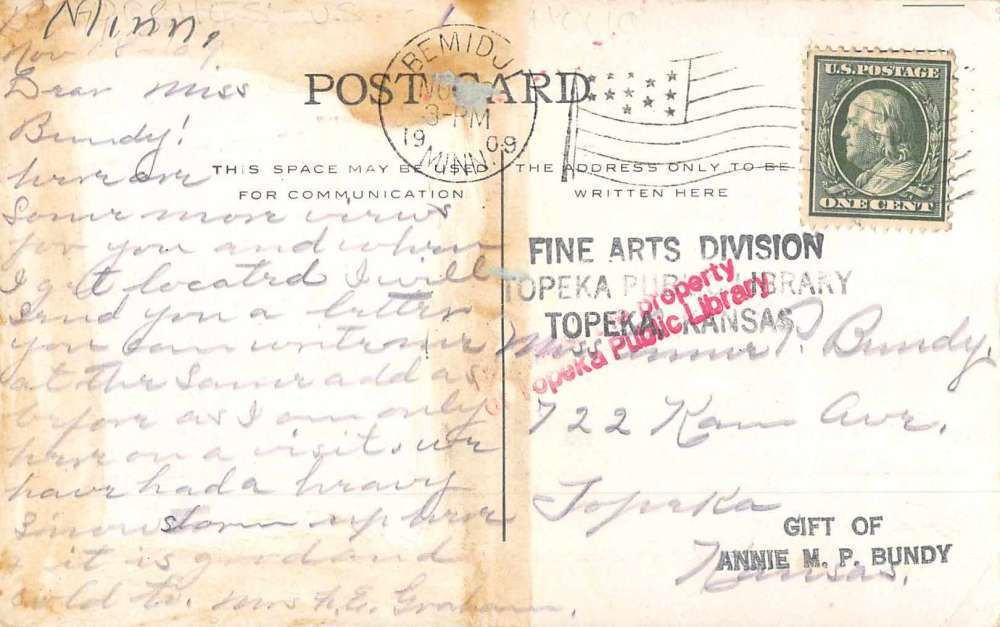 Minn,
Nov 18-09
Dear Miss
Bundy!
here are
some more views
for you and when
I get located I will
send you a letter
you can write me
at the same add as
before as I am only
here on a visit. we
have had a heavy
snow storm up here
it is good and
cold to. Mrs A.E. Graham.
POST CARD
BEMIDJI
NOV
3-PM
1909
MINN
U.S. POSTAGE
ONE CENT
THIS SPACE MAY BE USED
FOR COMMUNICATION
THE ADDRESS ONLY TO BE
WRITTEN HERE
FINE ARTS DIVISION
TOPEKA PUBLIC LIBRARY
TOPEKA, KANSAS
property
of Topeka Public Library
Miss P. Bundy.
722 Kan Ave.
Topeka
Kansas.
GIFT OF
ANNIE M. P. BUNDY